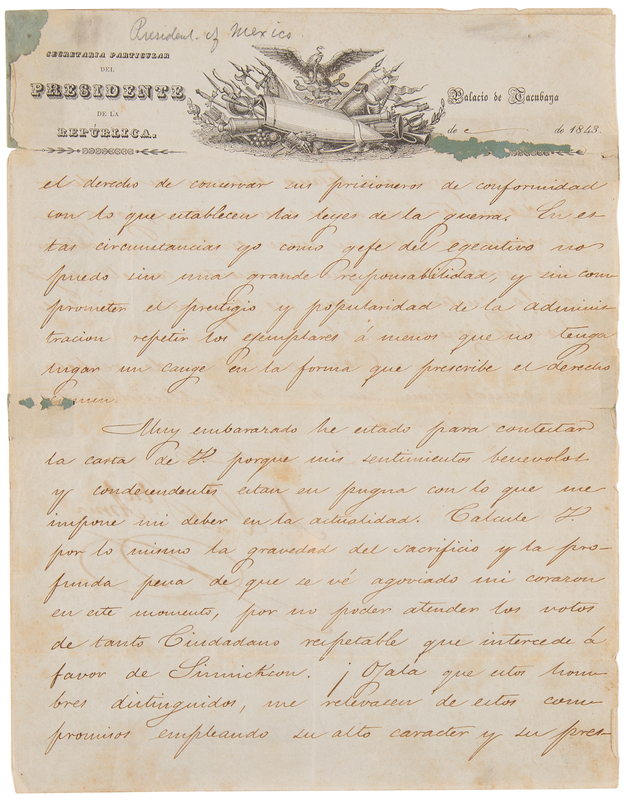 President of Mexico
SECRETARIA PARTICULAR
DEL
PRESIDENTE
DE LA
REPÚBLICA.
Palacio de Tacubaya
de de 1843.
el derecho de conservar sus prisioneros de conformidad
con lo que establecen las leyes de la guerra. En es-
tas circunstancias yo como gefe del egecutivo no
puedo sin una grande responsabilidad, y sin com
prometer el prestigio y popularidad de la adminis-
tracion repetir los esemplares á menos que no tenga
lugar un cange en la forma que prescribe el derecho
Muy embarazado he estado para contestar
la carta de V. porque mis sentimientos benevolos
y condecendentes estan en pugna con lo que me
impone mi deber en la actualidad. Calcule V.
por lo mismo la gravedad del sacrificio y la pro-
funda pena de que se vé agoviado mi corazon
en este momento, por no poder atender los votos
de tanto Ciudadano respetable que intercede á
favor de Sinnickson. ¡Ojala que estos hom
bres distinguidos, me relevasen de estos com
promisos empleando su alto caracter y su pres-